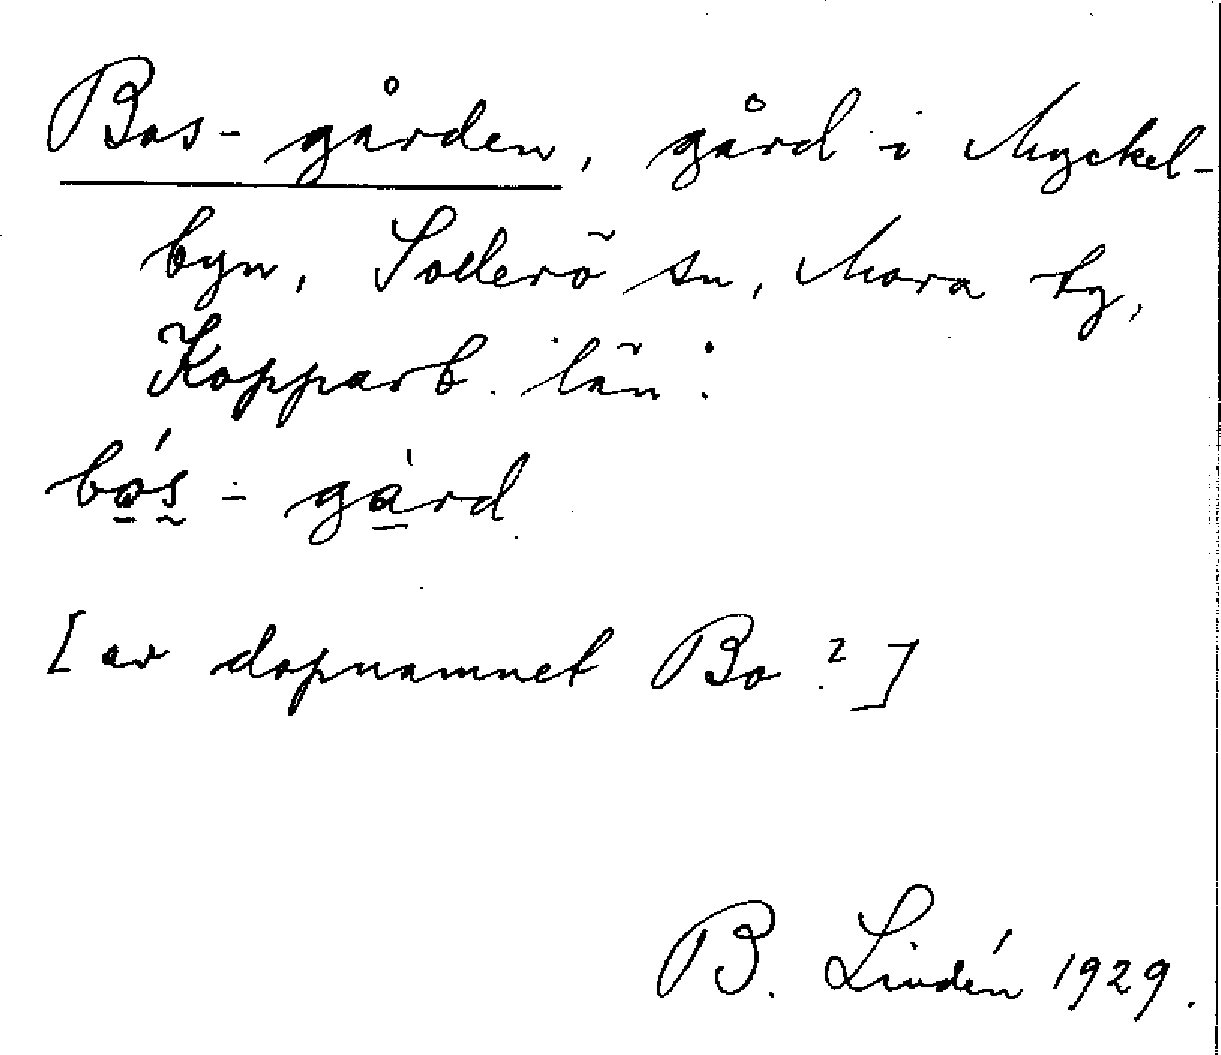 Bos-gården, gård i Myckel-
byn, Solerö sn, Mora tg,
Kopparb. län:
bo̱s-ga̱rd
[av dopnamnet Bo?]
B. Lindén 1929.